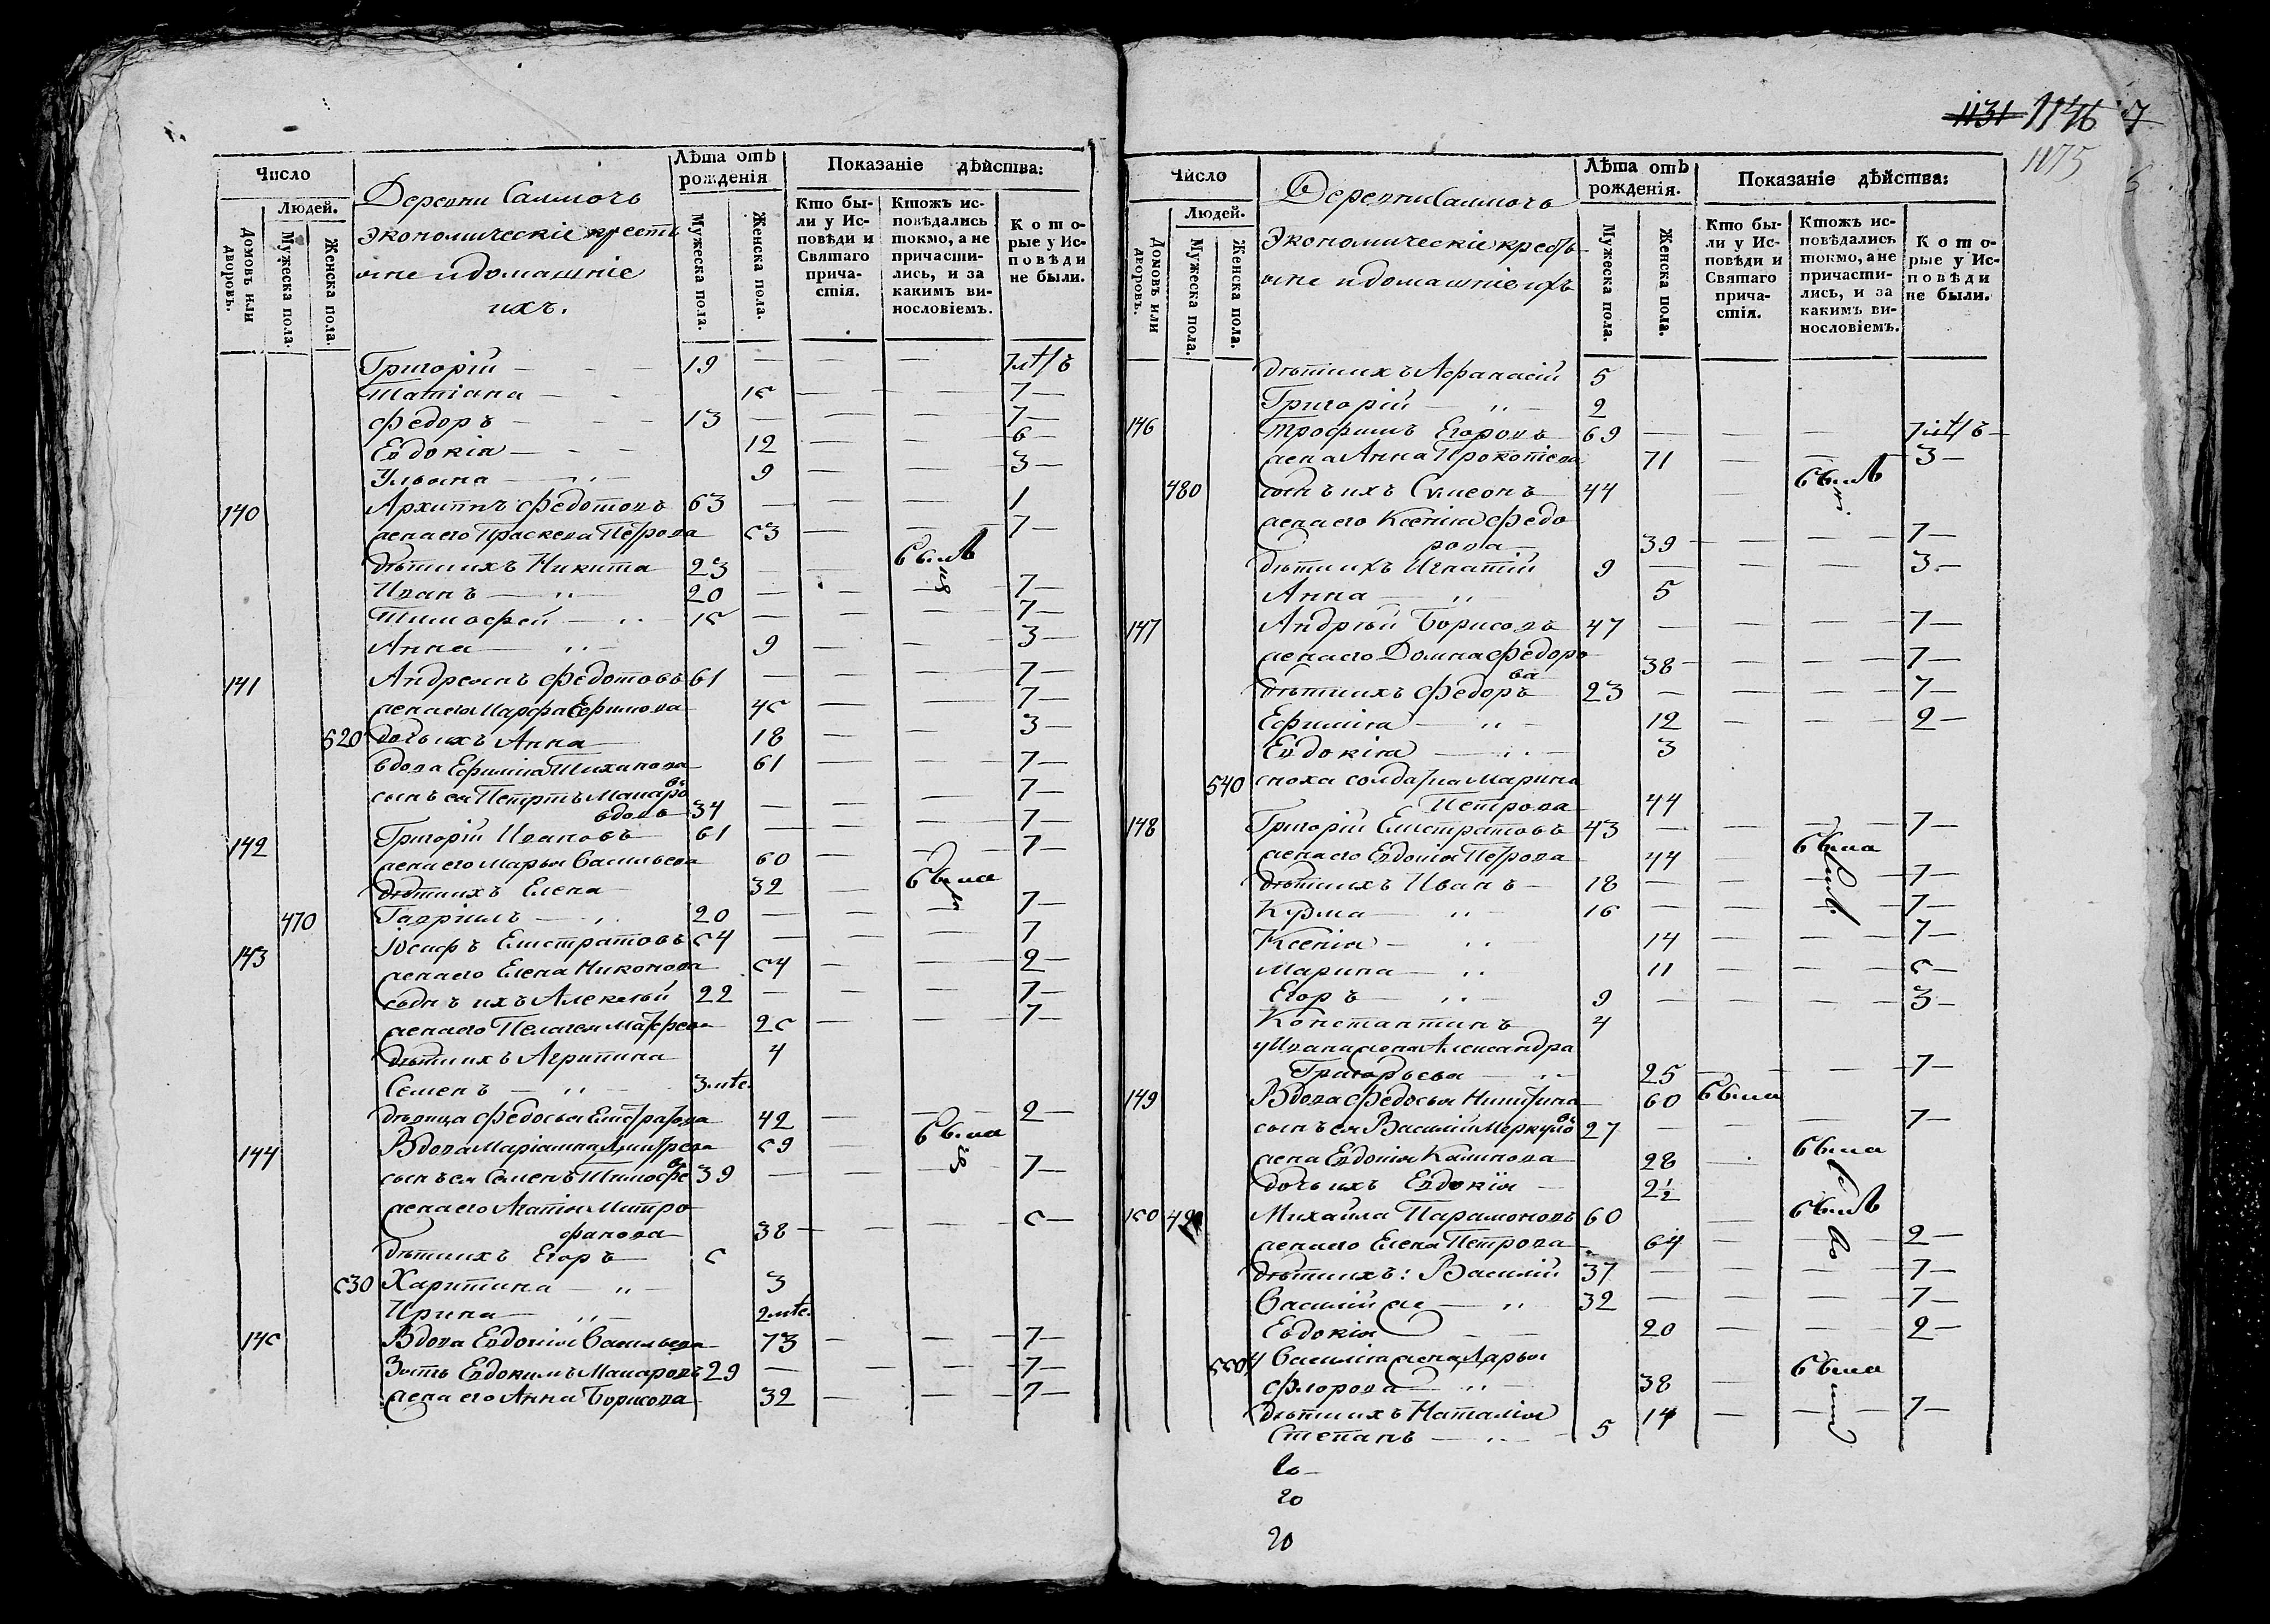 Число
Людей.
Домовъ или дворовъ.
Мужеска пола.
Женска пола.
Деревни
экономическіе крестъ
яне и домашніе
ихъ.
Лѣта отъ рожденія
Мужеска пола.
Женска пола.
Показаніе дѣйства:
Кто были у Исповѣди и Святаго причастія.
Ктожъ исповѣдались токмо, а не причастились, и за какимъ винословіемъ.
Которые у Исповѣди не были.
Григорій 19
Татіана 1с 7
Федоръ 13 7
Евдокіа 12 6
Ульяна 9 3
140 Архипъ Федотовъ 63 1
жена его Праскева Петрова с3 7
дѣти ихъ Никита 23 былъ
Иванъ 20 7
Тимофей 1с 7
Анна 9 3
141 Андреянъ Федотовъ 61 7
жена его Марфа Ефимова 4с 7
520 дочь ихъ Анна 18 3
вдова Ефиміа 61 7
сынъ ея Петръ 7
вдовъ 34
142 Григорій Ивановъ 61 7
жена его Марья Васильева 60 7
дѣти ихъ Елена 32 была
470 Гавріилъ 20 7
143 Іосифъ Елистратовъ с4 7
жена его Елена Никонова с4 2
сынъ ихъ Алексѣй 22 7
жена его Пелагея 2с 7
дѣти ихъ Агрипина 4
Семенъ 3
дѣвица Федосья 42 2
144 Вдова с9 была
сынъ ея Семенъ 39 7
жена его Агапія Митро
фанова 38 с
дѣти ихъ Егоръ с
с30 Харитина 3
Ирина 2
14с Вдова Евдокія Васильева 73 7
Зять Евдокимъ 29 7
жена его Анна Борисова 32 7
1131 1146
1175
Число
Людей.
Домовъ или дворовъ.
Мужеска пола.
Женска пола.
Деревни
Экономическіе кресть
яне и домашніе ихъ
Лѣта отъ рожденія.
Мужеска пола.
Женска пола.
Показаніе дѣйства:
Кто были у Исповѣди и Святаго причастія.
Ктожъ исповѣдались токмо, а не причастились, и за какимъ винословіемъ.
Которые у Исповѣди не были.
дѣти ихъ Афанасій 5
Григорій 2
146 Трофимъ Егоровъ 69
жена Анна Прокопіева 71 3
480 сынъ ихъ Симеонъ 44 былъ
жена его Ксенія Федо
рова 39 7
дѣти ихъ Игнатій 9 3
Анна 5
147 Андрѣй Борисовъ 47 7
жена его Домна Федоро
ва 38 7
дѣти ихъ Федоръ 23 7
Ефиміа 12 2
Евдокіа 3
540 сноха солдатка Марина
Петрова 44
148 Григорій Елистратовъ 43 7
жена его Евдокія Петрова 44 была
дѣти ихъ Иванъ 18 7
Кузма 16 7
Ксеніа 14 7
Марина 11 с
Егоръ 9 3
Константинъ 4
у Ивана жена Александра
Григорьева 25 7
149 Вдова Федосья Никитина 60 была
сынъ ея Василій 27 7
жена Евдокія 28 была
дочь ихъ Евдокія 2½
1с0 490 Михайла Парамоновъ 60 былъ
жена его Елена Петрова 64 2
дѣти ихъ: Василій 37 7
Василій же 32 7
Евдокія 20 2
Василія жена Дарья
Флорова 38 была
дѣти ихъ Наталія 14 7
Степанъ 5
20
20
20